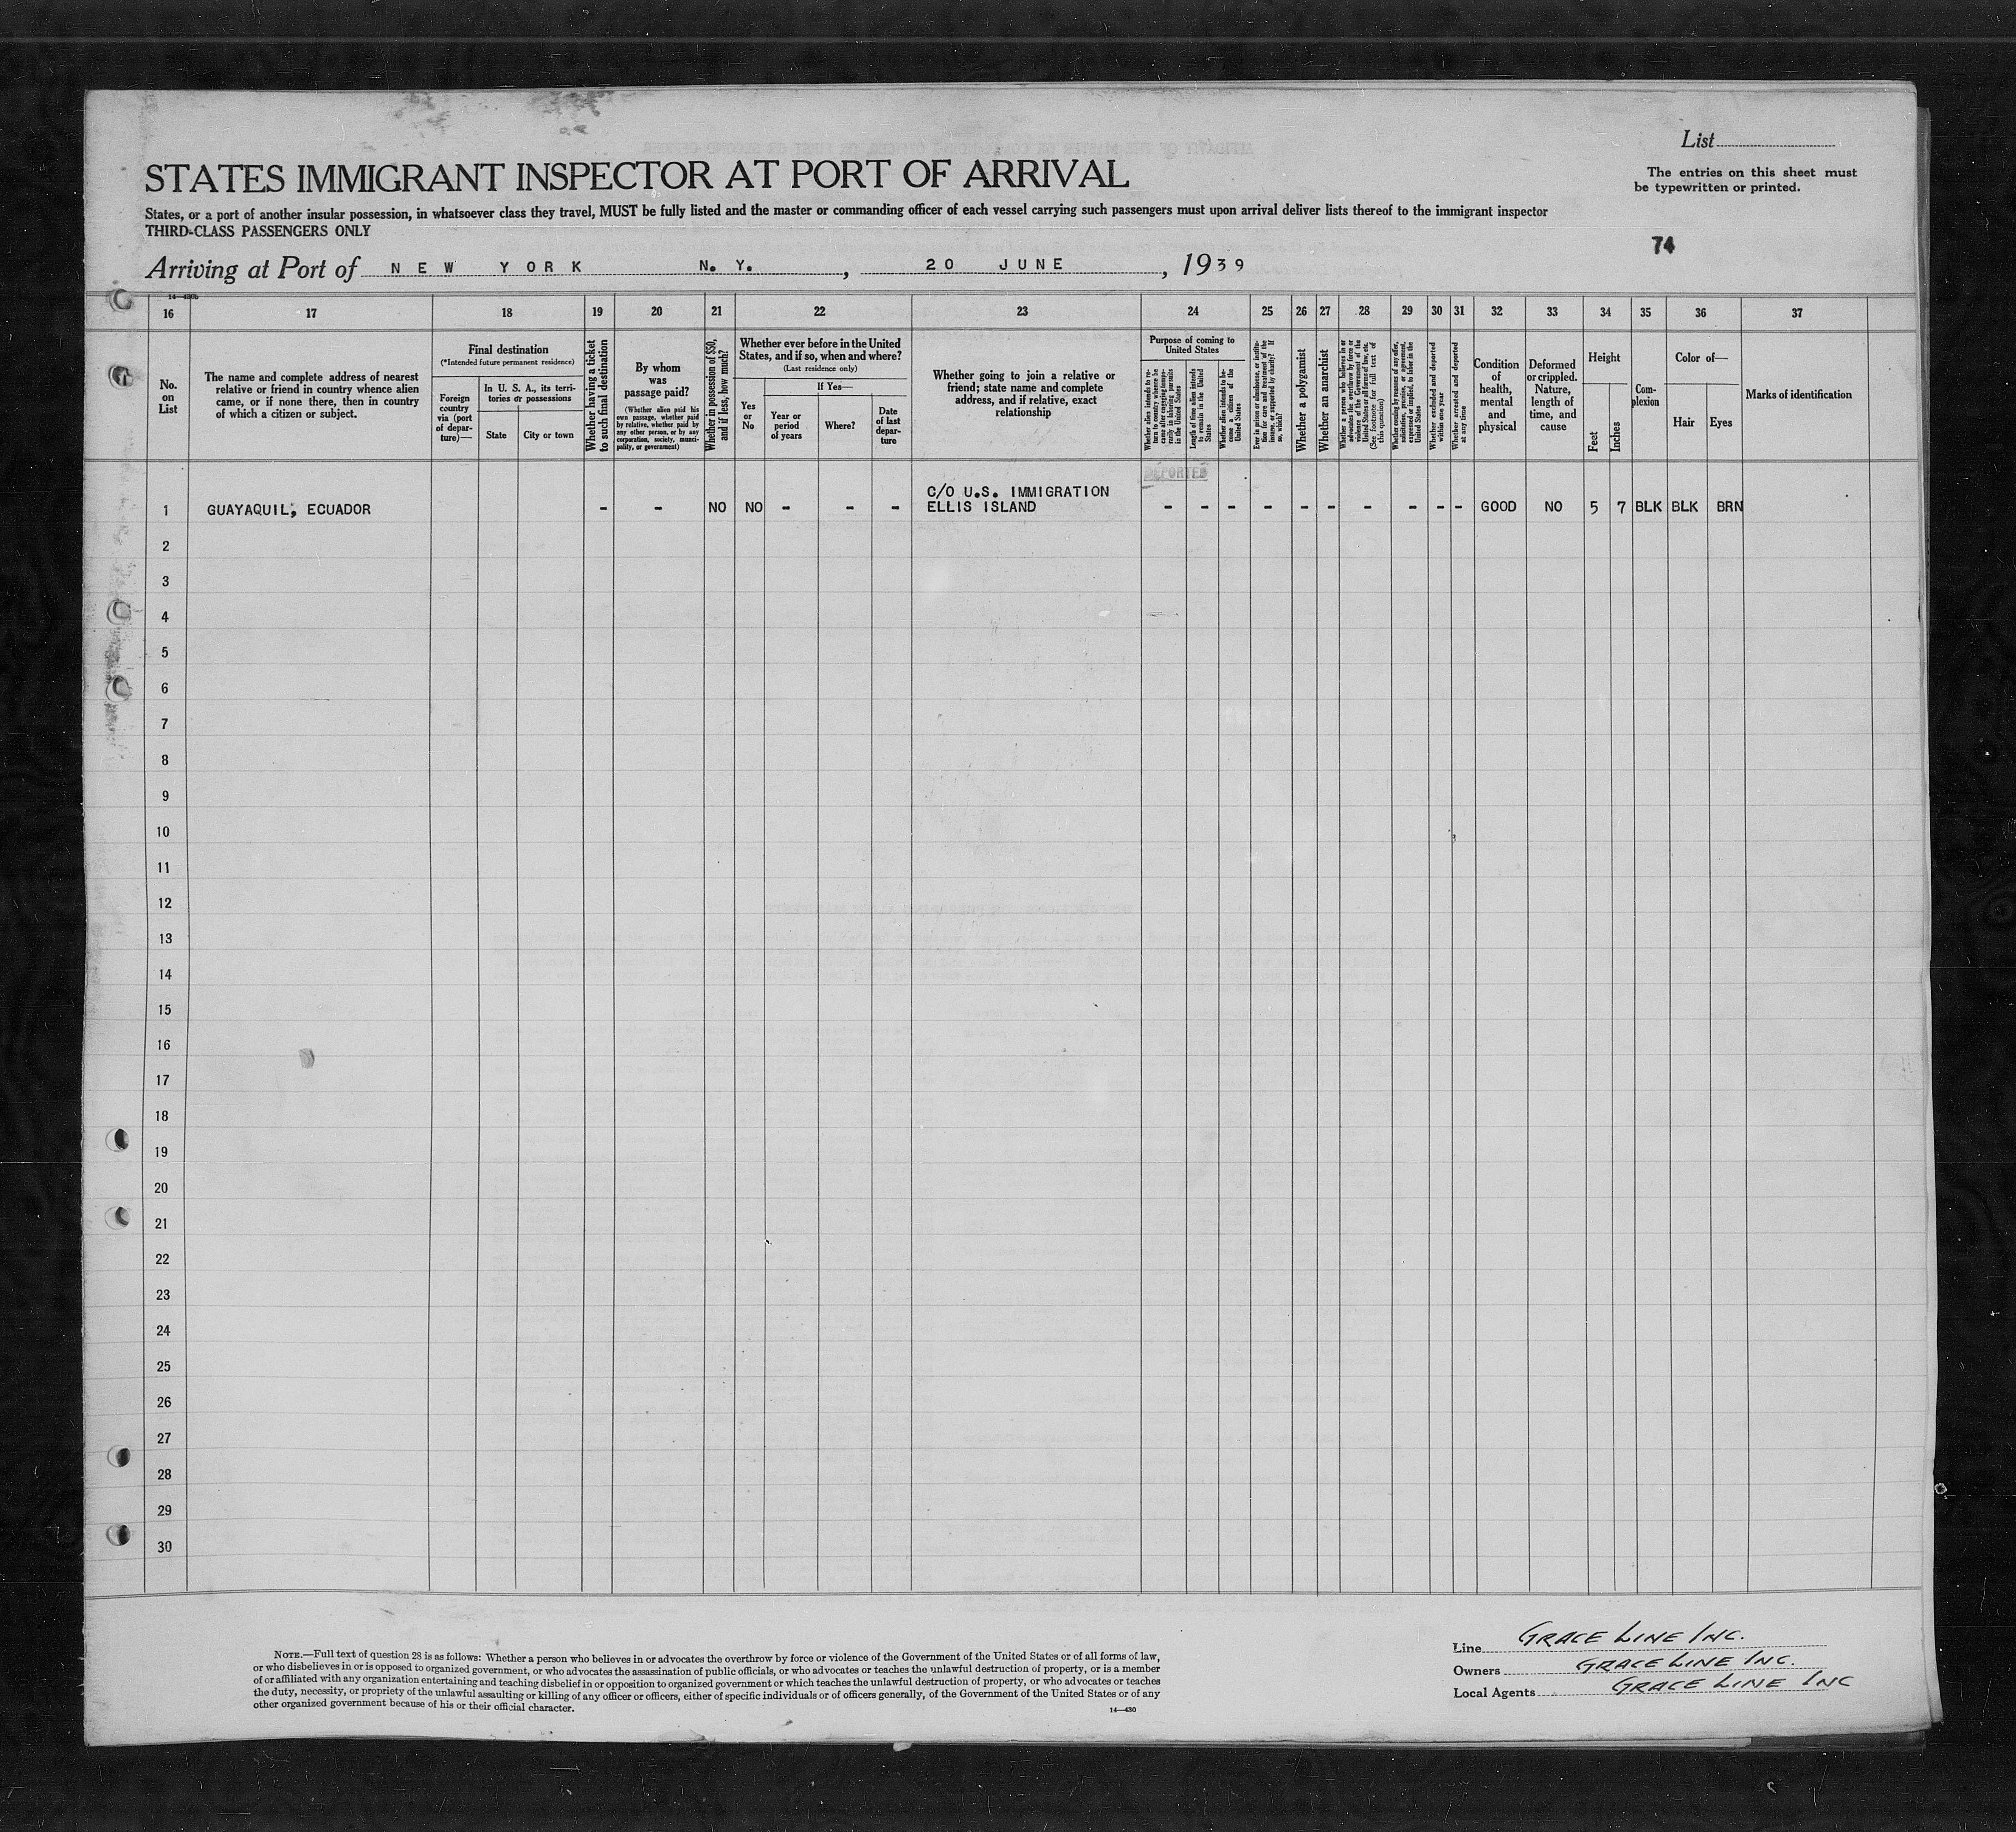 List
STATES IMMIGRANT INSPECTOR AT PORT OF ARRIVAL
The entries on this sheet must
be typewritten or printed.
States, or a port of another insular possession, in whatsoever class they travel, MUST be fully listed and the master or commanding officer of each vessel carrying such passengers must upon arrival deliver lists thereof to the immigrant inspector
THIRD-CLASS PASSENGERS ONLY
74
Arriving at Port of NEW YORK N. Y. , 20 JUNE , 1939
16 17 18 19 20 21 22 23 24 25 26 27 28 29 30 31 32 33 34 35 36 37
No.
on
List
The name and complete address of nearest
relative or friend in country whence alien
came, or if none there, then in country
of which a citizen or subject.
Final destination
(*Intended future permanent residence)
Foreign
country
via (port
of depar-
ture)—
In U. S. A., its terri-
tories or possessions
State
City or town
Whether having a ticket
to such final destination
By whom
was
passage paid?
(Whether alien paid his
own passage, whether paid
by relative, whether paid by
any other person, or by any
corporation, society, munici-
pality, or government)
Whether in possession of $50,
and if less, how much?
Whether ever before in the United
States, and if so, when and where?
(Last residence only)
Yes
or
No
If Yes—
Year or
period
of years
Where?
Date
of last
depar-
ture
Whether going to join a relative or
friend; state name and complete
address, and if relative, exact
relationship
Purpose of coming to
United States
Whether alien intends to re-
turn to country whence he
came after engaging tempo-
rarily in laboring pursuits
in the United States
Length of time alien intends
to remain in the United
States
Whether alien intends to be-
come a citizen of the
United States
Ever in prison or almshouse, or institu-
tion for care and treatment of the
insane, or supported by charity? If
so, which?
Whether a polygamist
Whether an anarchist
Whether a person who believes in or
advocates the overthrow by force or
violence of the Government of the
United States or all forms of law, etc.
(See footnote for full text of
this question)
Whether coming by reasons of any offer,
solicitation, promise, or agreement,
expressed or implied, to labor in the
United States
Whether excluded and deported
within one year
Whether arrested and deported
at any time
Condition
of
health,
mental
and
physical
Deformed
or crippled.
Nature,
length of
time, and
cause
Height
Feet
Inches
Com-
plexion
Color of—
Hair
Eyes
Marks of identification
DEPORTED
C/O U.S. IMMIGRATION
1 GUAYAQUIL, ECUADOR - - NO NO - - - ELLIS ISLAND - - - - - - - - - - GOOD NO 5 7 BLK BLK BRN
2
3
4
5
6
7
8
9
10
11
12
13
14
15
16
17
18
19
20
21
22
23
24
25
26
27
28
29
30
NOTE.—Full text of question 28 is as follows: Whether a person who believes in or advocates the overthrow by force or violence of the Government of the United States or of all forms of law,
or who disbelieves in or is opposed to organized government, or who advocates the assassination of public officials, or who advocates or teaches the unlawful destruction of property, or is a member
of or affiliated with any organization entertaining and teaching disbelief in or opposition to organized government or which teaches the unlawful destruction of property, or who advocates or teaches
the duty, necessity, or propriety of the unlawful assaulting or killing of any officer or officers, either of specific individuals or of officers generally, of the Government of the United States or of any
other organized government because of his or their official character.
14—430
Line GRACE LINE INC.
Owners GRACE LINE INC.
Local Agents GRACE LINE INC